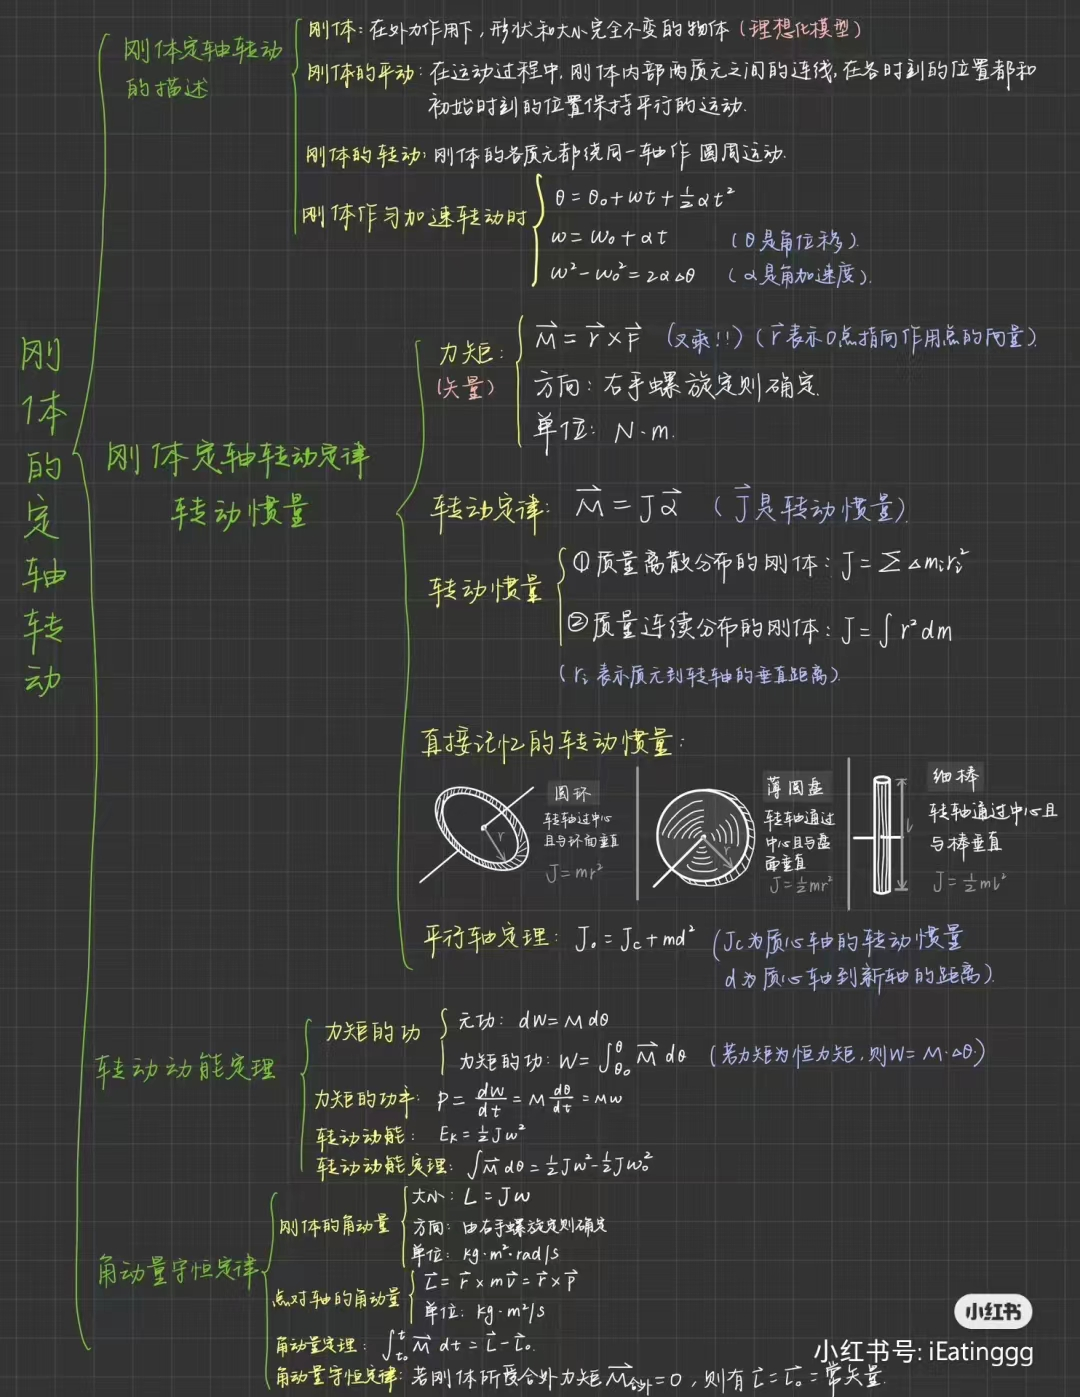 刚体的定轴转动
刚体定轴转动
的描述
刚体：在外力作用下，形状和大小完全不变的物体（理想化模型）
刚体的平动：在运动过程中，刚体内部两质元之间的连线，在各时刻的位置都和
初始时刻的位置保持平行的运动.
刚体的转动：刚体的各质元都绕同一轴作圆周运动.
刚体作匀加速转动时
θ = θ₀ + wt + ½αt²
w = w₀ + αt （θ是角位移）.
w² - w₀² = 2α△θ （α是角加速度）.
刚体定轴转动定律
转动惯量
力矩：
(矢量)
M⃗ = r⃗ × F⃗ （叉乘!!）（r⃗表示O点指向作用点的向量）
方向：右手螺旋定则确定.
单位：N·m.
转动定律：M⃗ = Jα⃗ （J⃗是转动惯量）.
转动惯量
①质量离散分布的刚体：J = ∑△mᵢrᵢ²
②质量连续分布的刚体：J = ∫r²dm
（rᵢ表示质元到转轴的垂直距离）.
直接记忆的转动惯量：
圆环
转轴过中心
且与环面垂直
J = mr²
r
薄圆盘
转轴通过
中心且与盘
面垂直
J = ½mr²
r
细棒
转轴通过中心且
与棒垂直
J = ½ml²
l
平行轴定理：J₀ = Jc + md² （Jc为质心轴的转动惯量
d为质心轴到新轴的距离）.
转动动能定理
力矩的功
元功：dW = Mdθ
力矩的功：W = ∫θ₀^θ M⃗ dθ （若力矩为恒力矩，则W = M·△θ.）
力矩的功率：P = dW/dt = M dθ/dt = Mw
转动动能：Eₖ = ½Jw²
转动动能定理：∫M⃗dθ = ½Jw² - ½Jw₀²
角动量守恒定律
刚体的角动量
大小：L = Jw
方向：由右手螺旋定则确定
单位：kg·m²·rad/s
点对轴的角动量
L⃗ = r⃗ × mv⃗ = r⃗ × p⃗
单位：kg·m²/s
角动量定理：∫t₀^t M⃗ dt = L⃗ - L⃗₀.
角动量守恒定律：若刚体所受合外力矩M⃗合外 = 0，则有L⃗ = L⃗₀ = 常矢量.
小红书
小红书号: iEatinggg